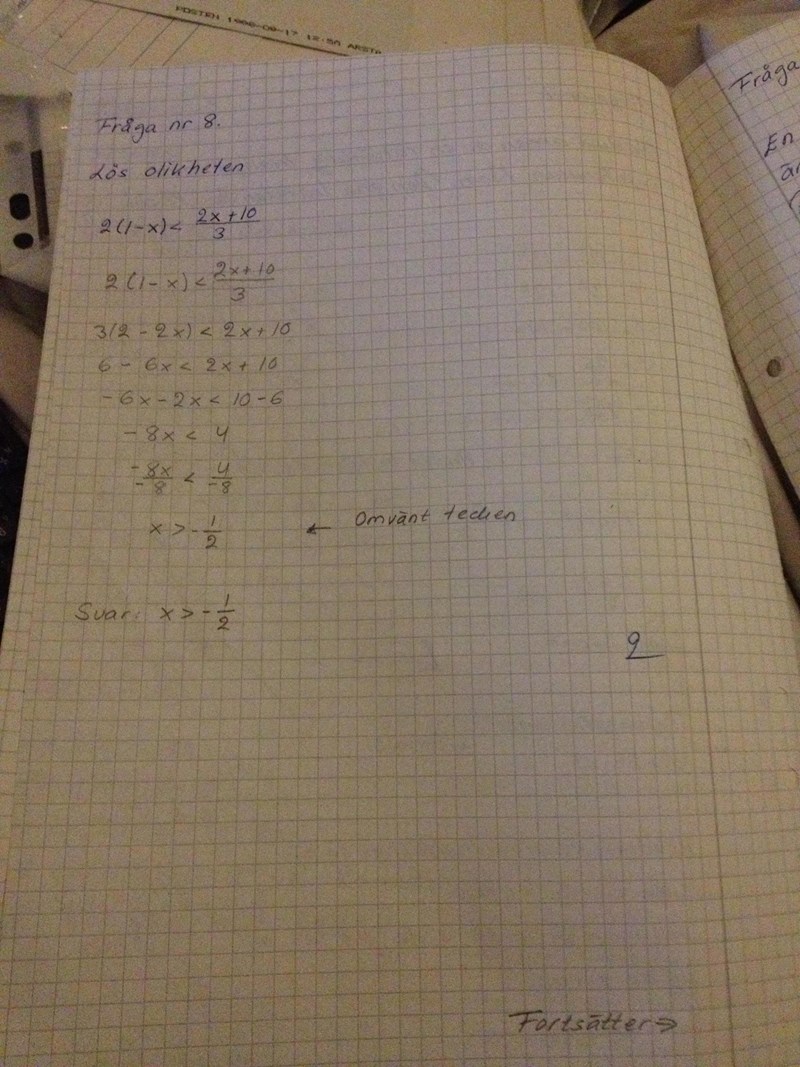 POSTEN 1996-09-17 12:50 ARSTA
Fråga nr 8.
Lös olikheten
2(1-x) < 2x+10/3
2(1-x) < 2x+10/3
3(2-2x) < 2x+10
6 - 6x < 2x + 10
-6x-2x < 10-6
-8x < 4
-8x/-8 < 4/-8
x > -1/2 ← Omvänt tecken
Svar: x > -1/2
9
Fortsätter ⇒
Fråga
En